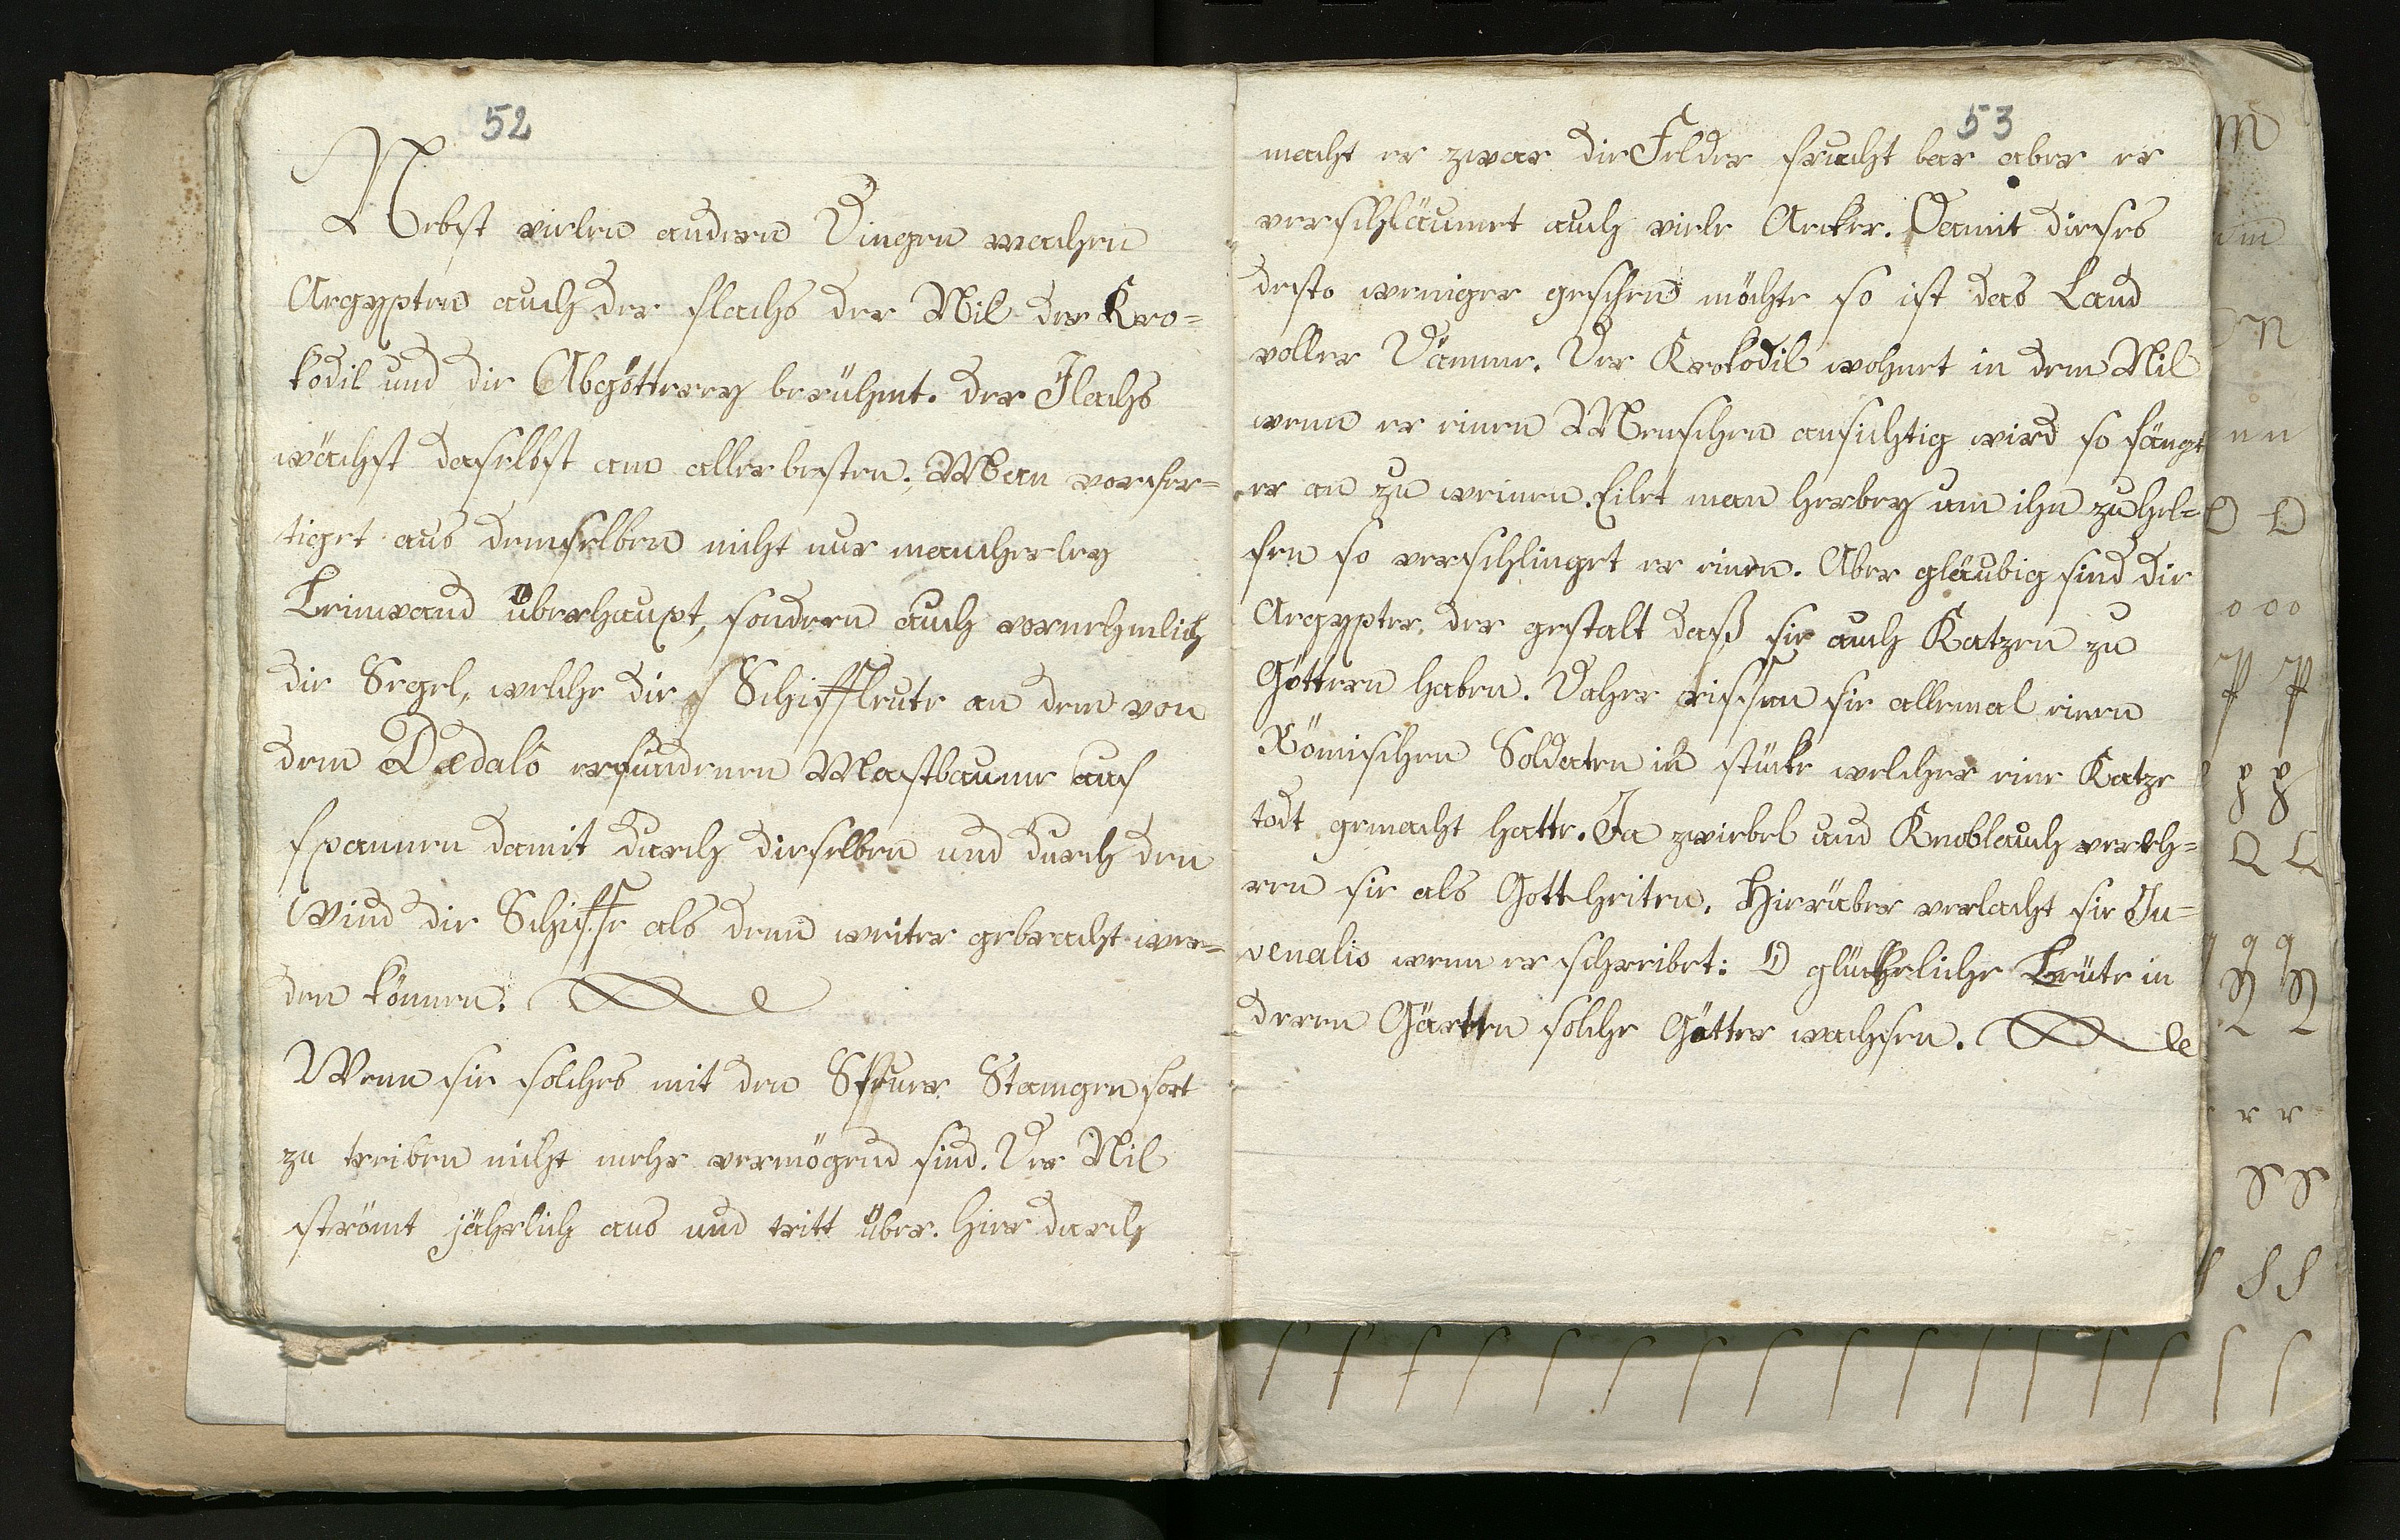 52
Nebst vielen andern Dingen machen
Aegypten auch der flachs der Nil der Kro=
kodil und die Abgötterey berühmt. der Flachs
wächst daselbst am allerbesten. Man verfer=
tiget aus demselben nicht nur mancherley
Leinwand überhaupt, sondern auch vornehmlich
die Segel, welche die Schiffleute an dem von
dem Dædalo erfundenen Mastbaume auf
spannen damit durch dieselben und durch den
Wind die Schiffe als denn weiter gebracht wer=
den können.
Wenn sie solches mit den Steuer Stangen fort
zu treiben nicht mehr vermögend sind. Der Nil
strömt jährlich aus und tritt über. hier durch
53
macht er zwar die Felder frucht bar aber er
verschläumet auch viele Aecker. Damit dieses
desto weniger geschen möchte so ist das Land
voller Dämme. Der Krokodil wohnet in dem Nil
wenn er einen Menschen ansichtig wird so fängt
er an zu weinen. Eilet man herbey um ihn zu hel=
fen so verschlinget er einen. Aber gläubig sind die
Aegypter, der gestalt daß sie auch Katzen zu
Göttern haben. Daher rissen sie allemal einen
Römischen Soldaten in stücke welcher eine Katze
todt gemacht hatte. Ja zwiebel und Knoblauch vereh=
ren sie als Gottheiten. Hierüber verlacht sie Ju=
venalis wenn er schreibet: O glückliche Leute in
deren Gärten solche Götter wachsen.